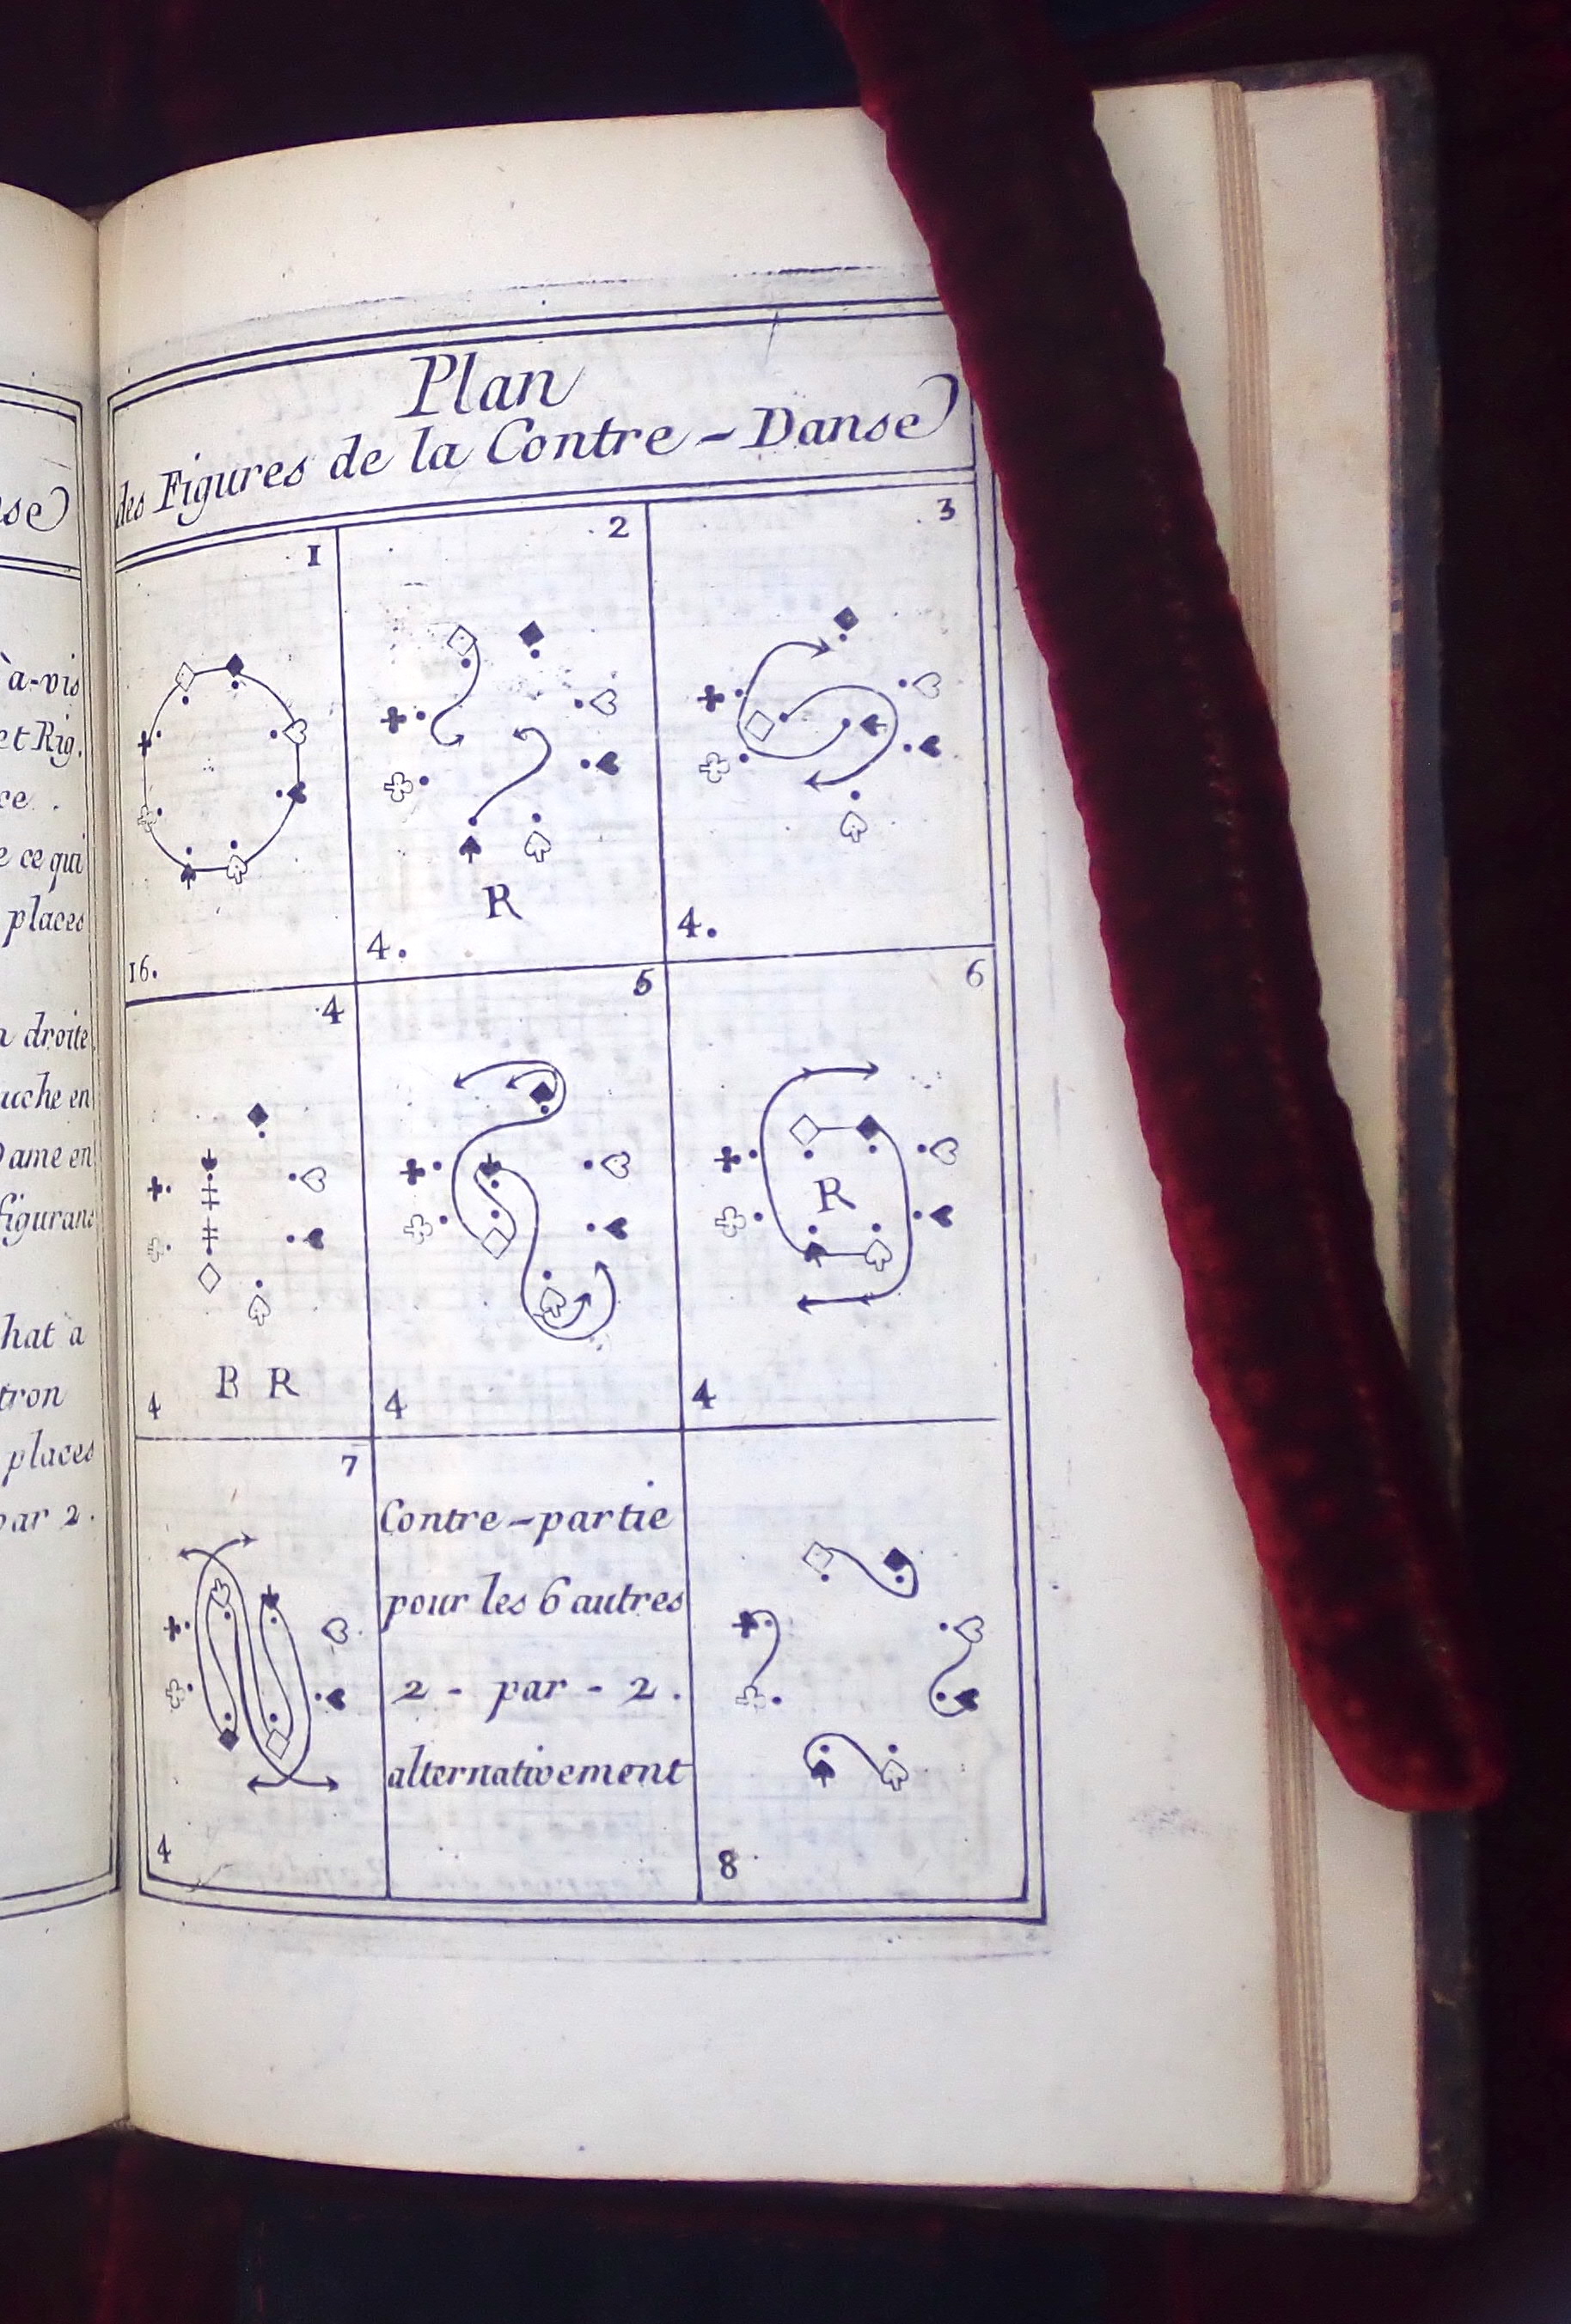 se
à-vis
et Rig.
ce.
e ce qui
places
droite
uche en
Dame en
figuran
hat a
tron
places
par 2.
Plan
des Figures de la Contre-Danse
1
16.
2
R
4.
3
4.
4
R R
4
5
4
6
R
4
7
4
Contre-partie
pour les 6 autres
2-par-2.
alternativement
8